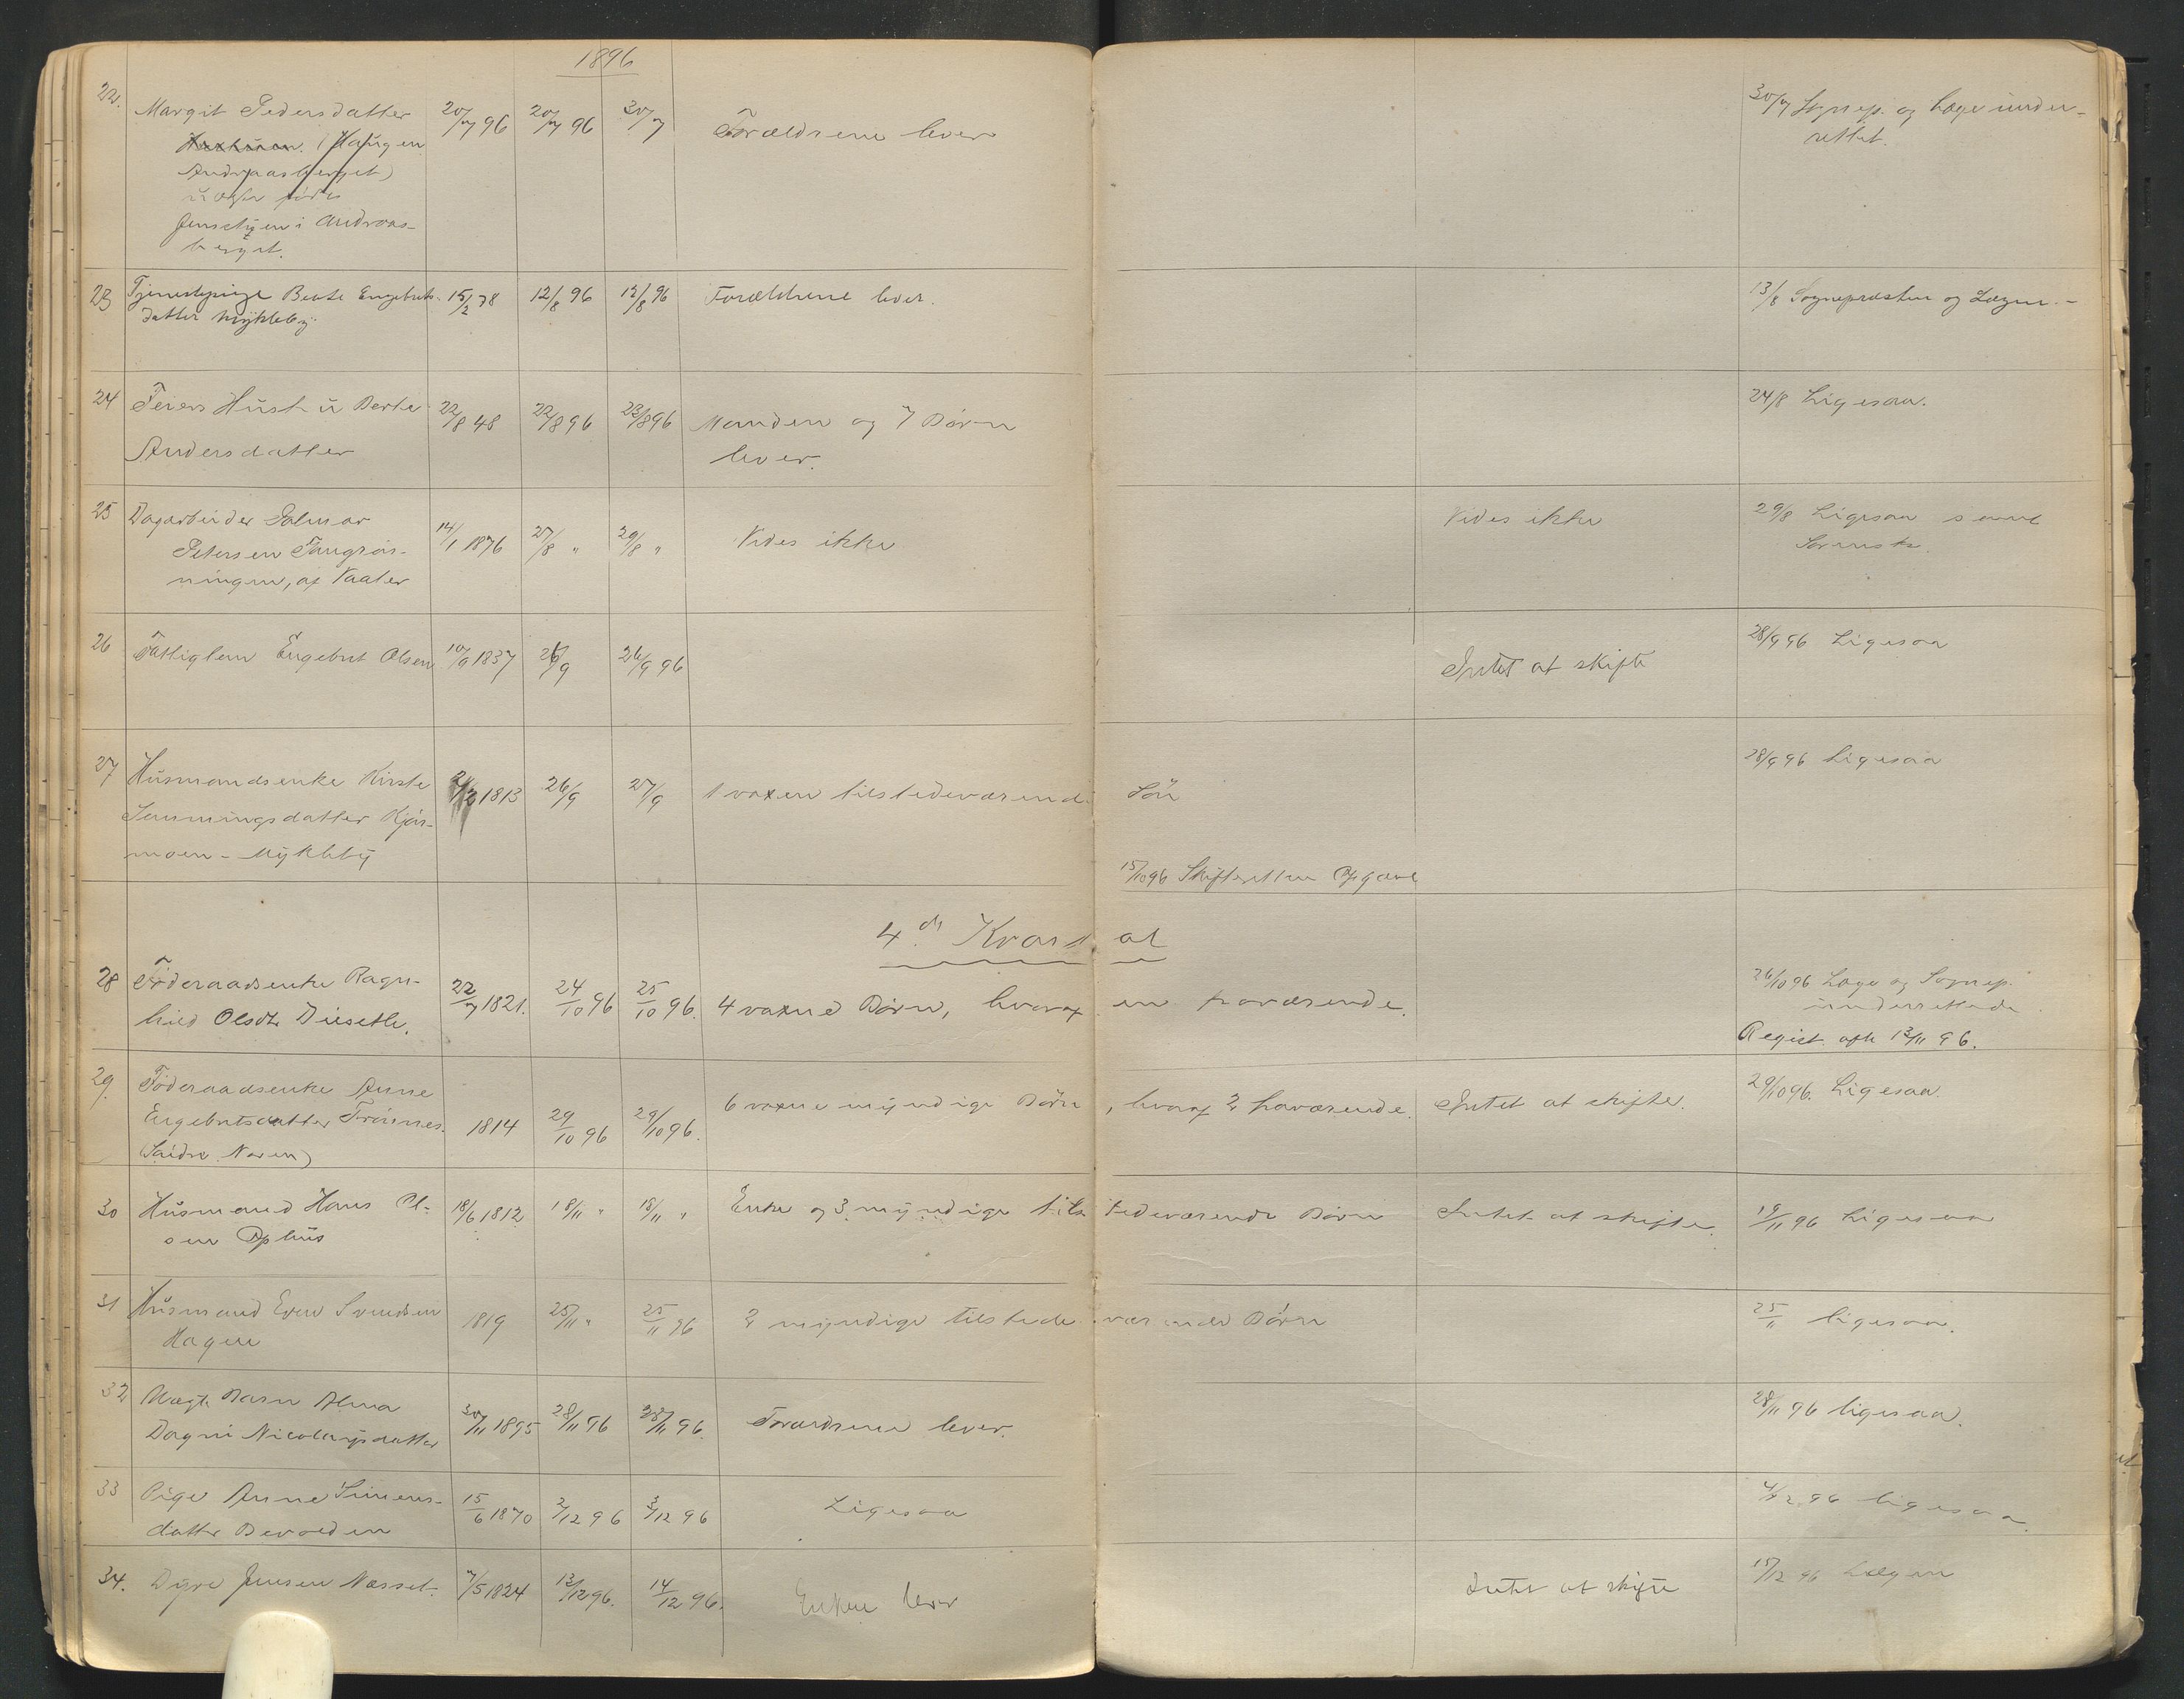 1896
22. Margit Pedersdatter 20/7 96 20/7 96 30/7 Forældrene lever 30/7 Sognep. og Læge under-
(Haugen rettet.
Andraasberget)
uægte født
i Andraas-
berget.
23 Tjenestepige Beate Engebrets- 15/2 78 12/8 96 12/8 96 Forældrene lever. 13/8 Sognepresten og Lægen.-
datter Mykleby
24 Feiers Hustru Berte 22/8 48 22/8 96 23/8 96 Manden og 7 Børn 24/8 Ligesaa.
Andersdatter lever.
25 Dagarbeider Palmar 14/1 1876 27/8 " 29/8 " Vides ikke Vides ikke 29/8 Ligesaa samt
Petersen Sorensk.
ningen, af Vaaler
26 Fattiglem Engebret Olsen 10/9 1837 26/9 26/9 96 Intet at skifte 28/9 96 Ligesaa
27 Husmandsenke Kirste 1813 26/9 27/9 1 voxen tilstedeværende Søn 28/9 96 Ligesaa
Semmingsdatter Kjær-
moen - Mykleby
15/10 96 Skifteretten Opgave
4de Kvartal
28 Føderaadsenke Ragn- 22/7 1821. 24/10 96 25/10 96. 4 voxne Børn, hvoraf en nærværende. 26/10 96 Læge og Sognep.
hild Olsdtr Dieseth. underrettede.
Regist. afh 12/11 96.
29. Føderaadsenke Anne 1814 29/10 96 29/10 96. 6 voxne myndige Børn, hvoraf 2 nærværende. Intet at skifte. 29/10 96. Ligesaa.
Engebretsdatter Trønnes.
(Søidre Noren)
30 Husmand Hans Ol- 18/6 1812 18/11 " 18/11 " Enke og 3 myndige tilstedeværende Børn Intet at skifte. 19/11 96 Ligesaa
sen Ophus
31 Husmand Even Svendsen 1819 25/11 " 25/11 96 2 myndige tilstedeværende Børn 25/11 ligesaa.
Hagen
32 Uægte Barn Alma 30/11 1895 28/11 96 28/11 96. Forældrene lever. 28/11 96 ligesaa.
Dagni Nicolaysdatter
33 Pige Anne Simens- 15/6 1870 2/12 96 3/12 96 Ligesaa 4/12 96 ligesaa.
datter Bevolden
34. Dyre Jensen Næsset. 7/5 1824 13/12 96. 14/12 96. Enken lever Intet at skifte 15/12 96 Lægen